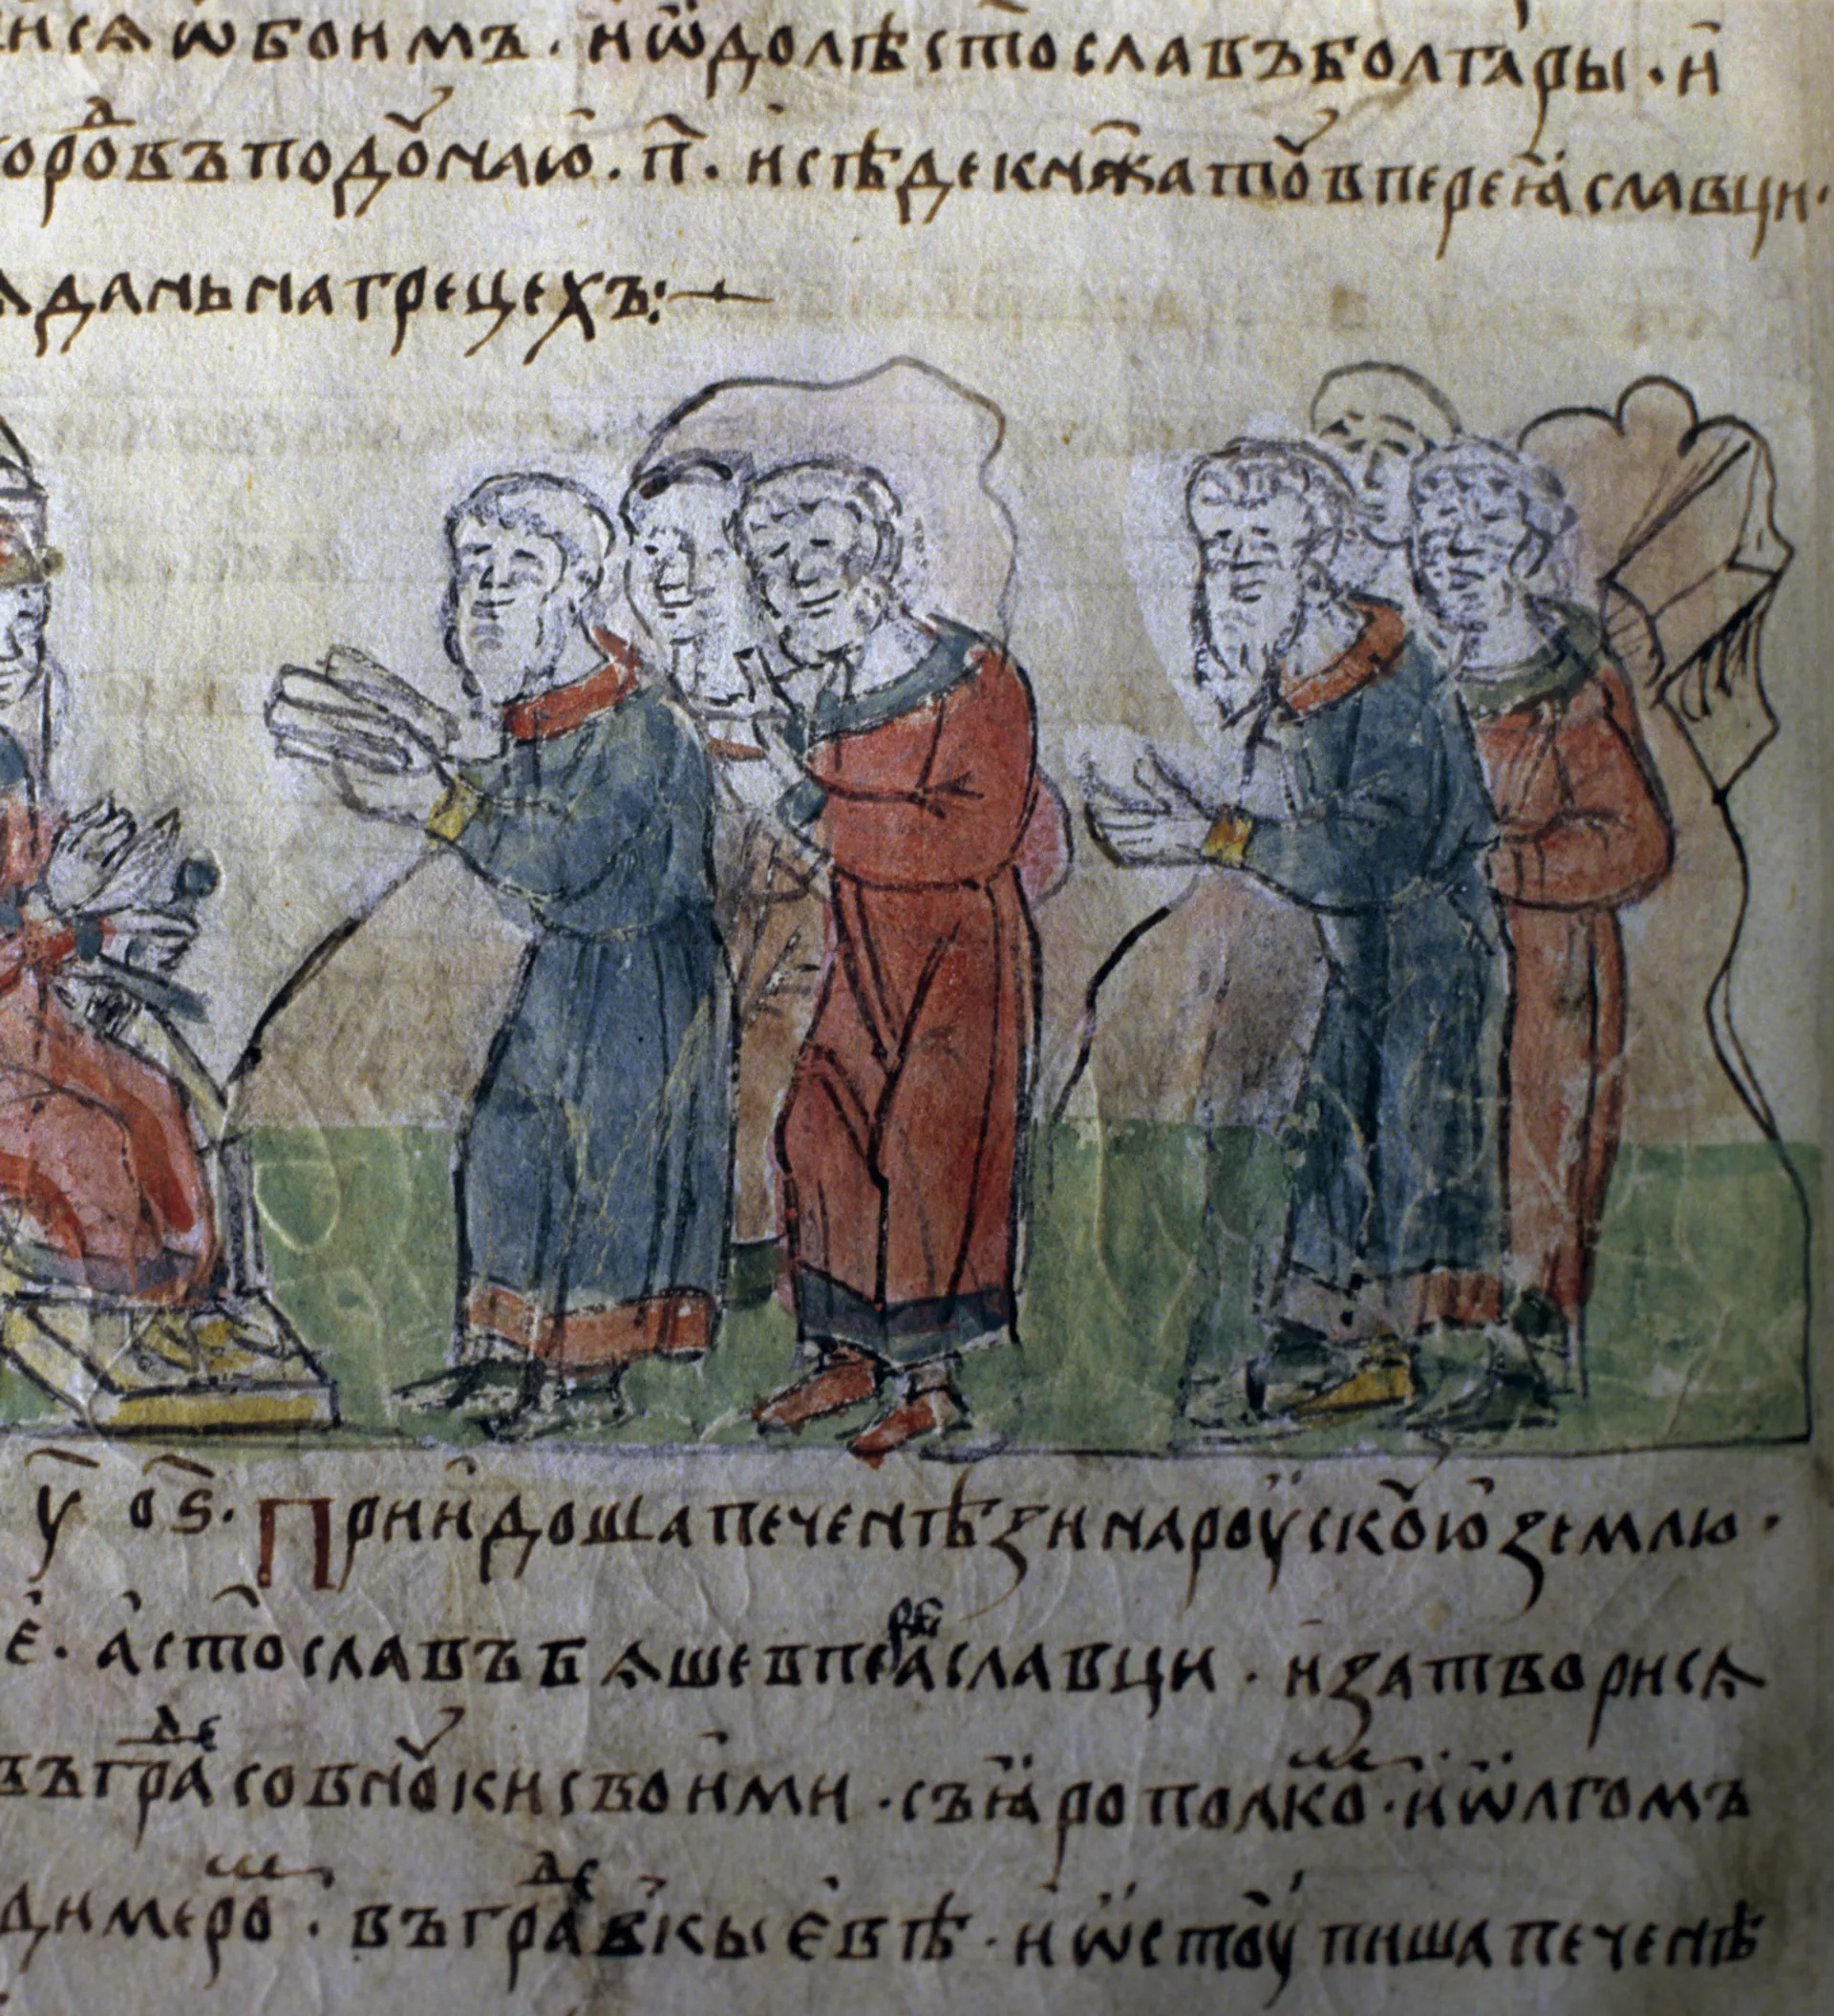 нсѧ ѡбоимъ · и ѿдолѣ ст҃ославъ болгары · и
горо́въ по до́наю · п҃ · и сѣде кнѧжа то́ в переꙗславци ·
дань на грецех̾ъ :—
у оѕ · Приидоша печенѣзи на роускоую землю ·
е · а ст҃ославъ бѧше в переꙗславци · и затворисѧ
въ градѣ со вноки своими · съ ꙗрополко · и ѡлгомъ
димеро · въ градѣ кыевѣ · и ѡстоупиша печенѣ